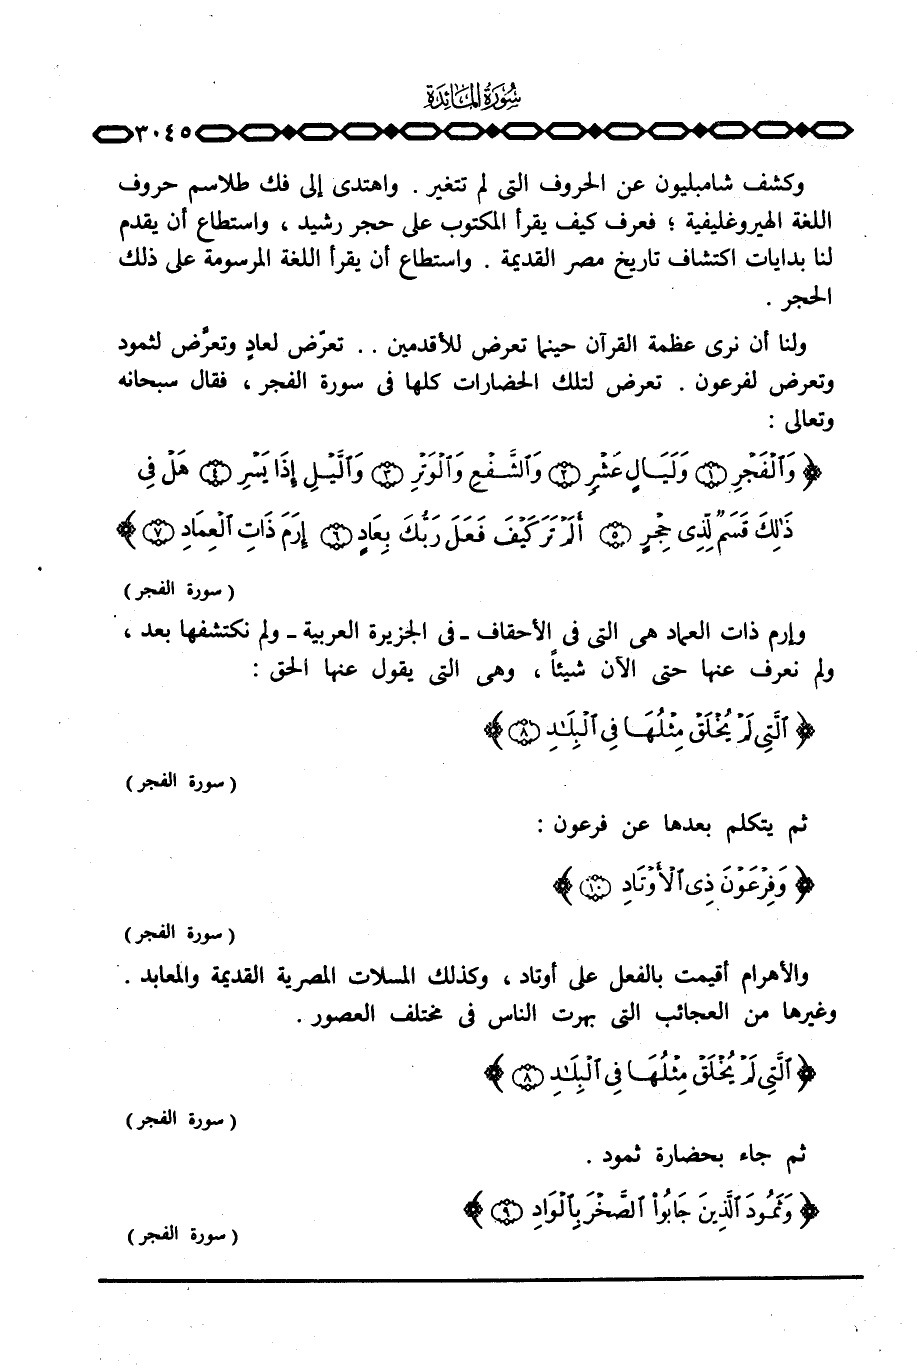 سُورَةُ المَائِدَةِ
٣٠٤٥
وكشف شامبليون عن الحروف التى لم تتغير . واهتدى إلى فك طلاسم حروف
اللغة الهيروغليفية ؛ فعرف كيف يقرأ المكتوب على حجر رشيد ، واستطاع أن يقدم
لنا بدايات اكتشاف تاريخ مصر القديمة . واستطاع أن يقرأ اللغة المرسومة على ذلك
الحجر .
ولنا أن نرى عظمة القرآن حينما تعرض للأقدمين . . تعرّض لعادٍ وتعرَّض لثمود
وتعرض لفرعون . تعرض لتلك الحضارات كلها فى سورة الفجر ، فقال سبحانه
وتعالى :
﴿ وَٱلْفَجْرِ ١ وَلَيَالٍ عَشْرٍ ٢ وَٱلشَّفْعِ وَٱلْوَتْرِ ٣ وَٱلَّيْلِ إِذَا يَسْرِ ٤ هَلْ فِى
ذَٰلِكَ قَسَمٌ لِّذِى حِجْرٍ ٥ أَلَمْ تَرَ كَيْفَ فَعَلَ رَبُّكَ بِعَادٍ ٦ إِرَمَ ذَاتِ ٱلْعِمَادِ ٧ ﴾
( سورة الفجر )
وإرم ذات العماد هى التى فى الأحقاف - فى الجزيرة العربية - ولم نكتشفها بعد ،
ولم نعرف عنها حتى الآن شيئاً ، وهى التى يقول عنها الحق :
﴿ ٱلَّتِى لَمْ يُخْلَقْ مِثْلُهَا فِى ٱلْبِلَـٰدِ ٨ ﴾
( سورة الفجر )
ثم يتكلم بعدها عن فرعون :
﴿ وَفِرْعَوْنَ ذِى ٱلْأَوْتَادِ ١٠ ﴾
( سورة الفجر )
والأهرام أقيمت بالفعل على أوتاد ، وكذلك المسلات المصرية القديمة والمعابد .
وغيرها من العجائب التى بهرت الناس فى مختلف العصور .
﴿ ٱلَّتِى لَمْ يُخْلَقْ مِثْلُهَا فِى ٱلْبِلَـٰدِ ٨ ﴾
( سورة الفجر )
ثم جاء بحضارة ثمود .
﴿ وَثَمُودَ ٱلَّذِينَ جَابُوا۟ ٱلصَّخْرَ بِٱلْوَادِ ٩ ﴾
( سورة الفجر )